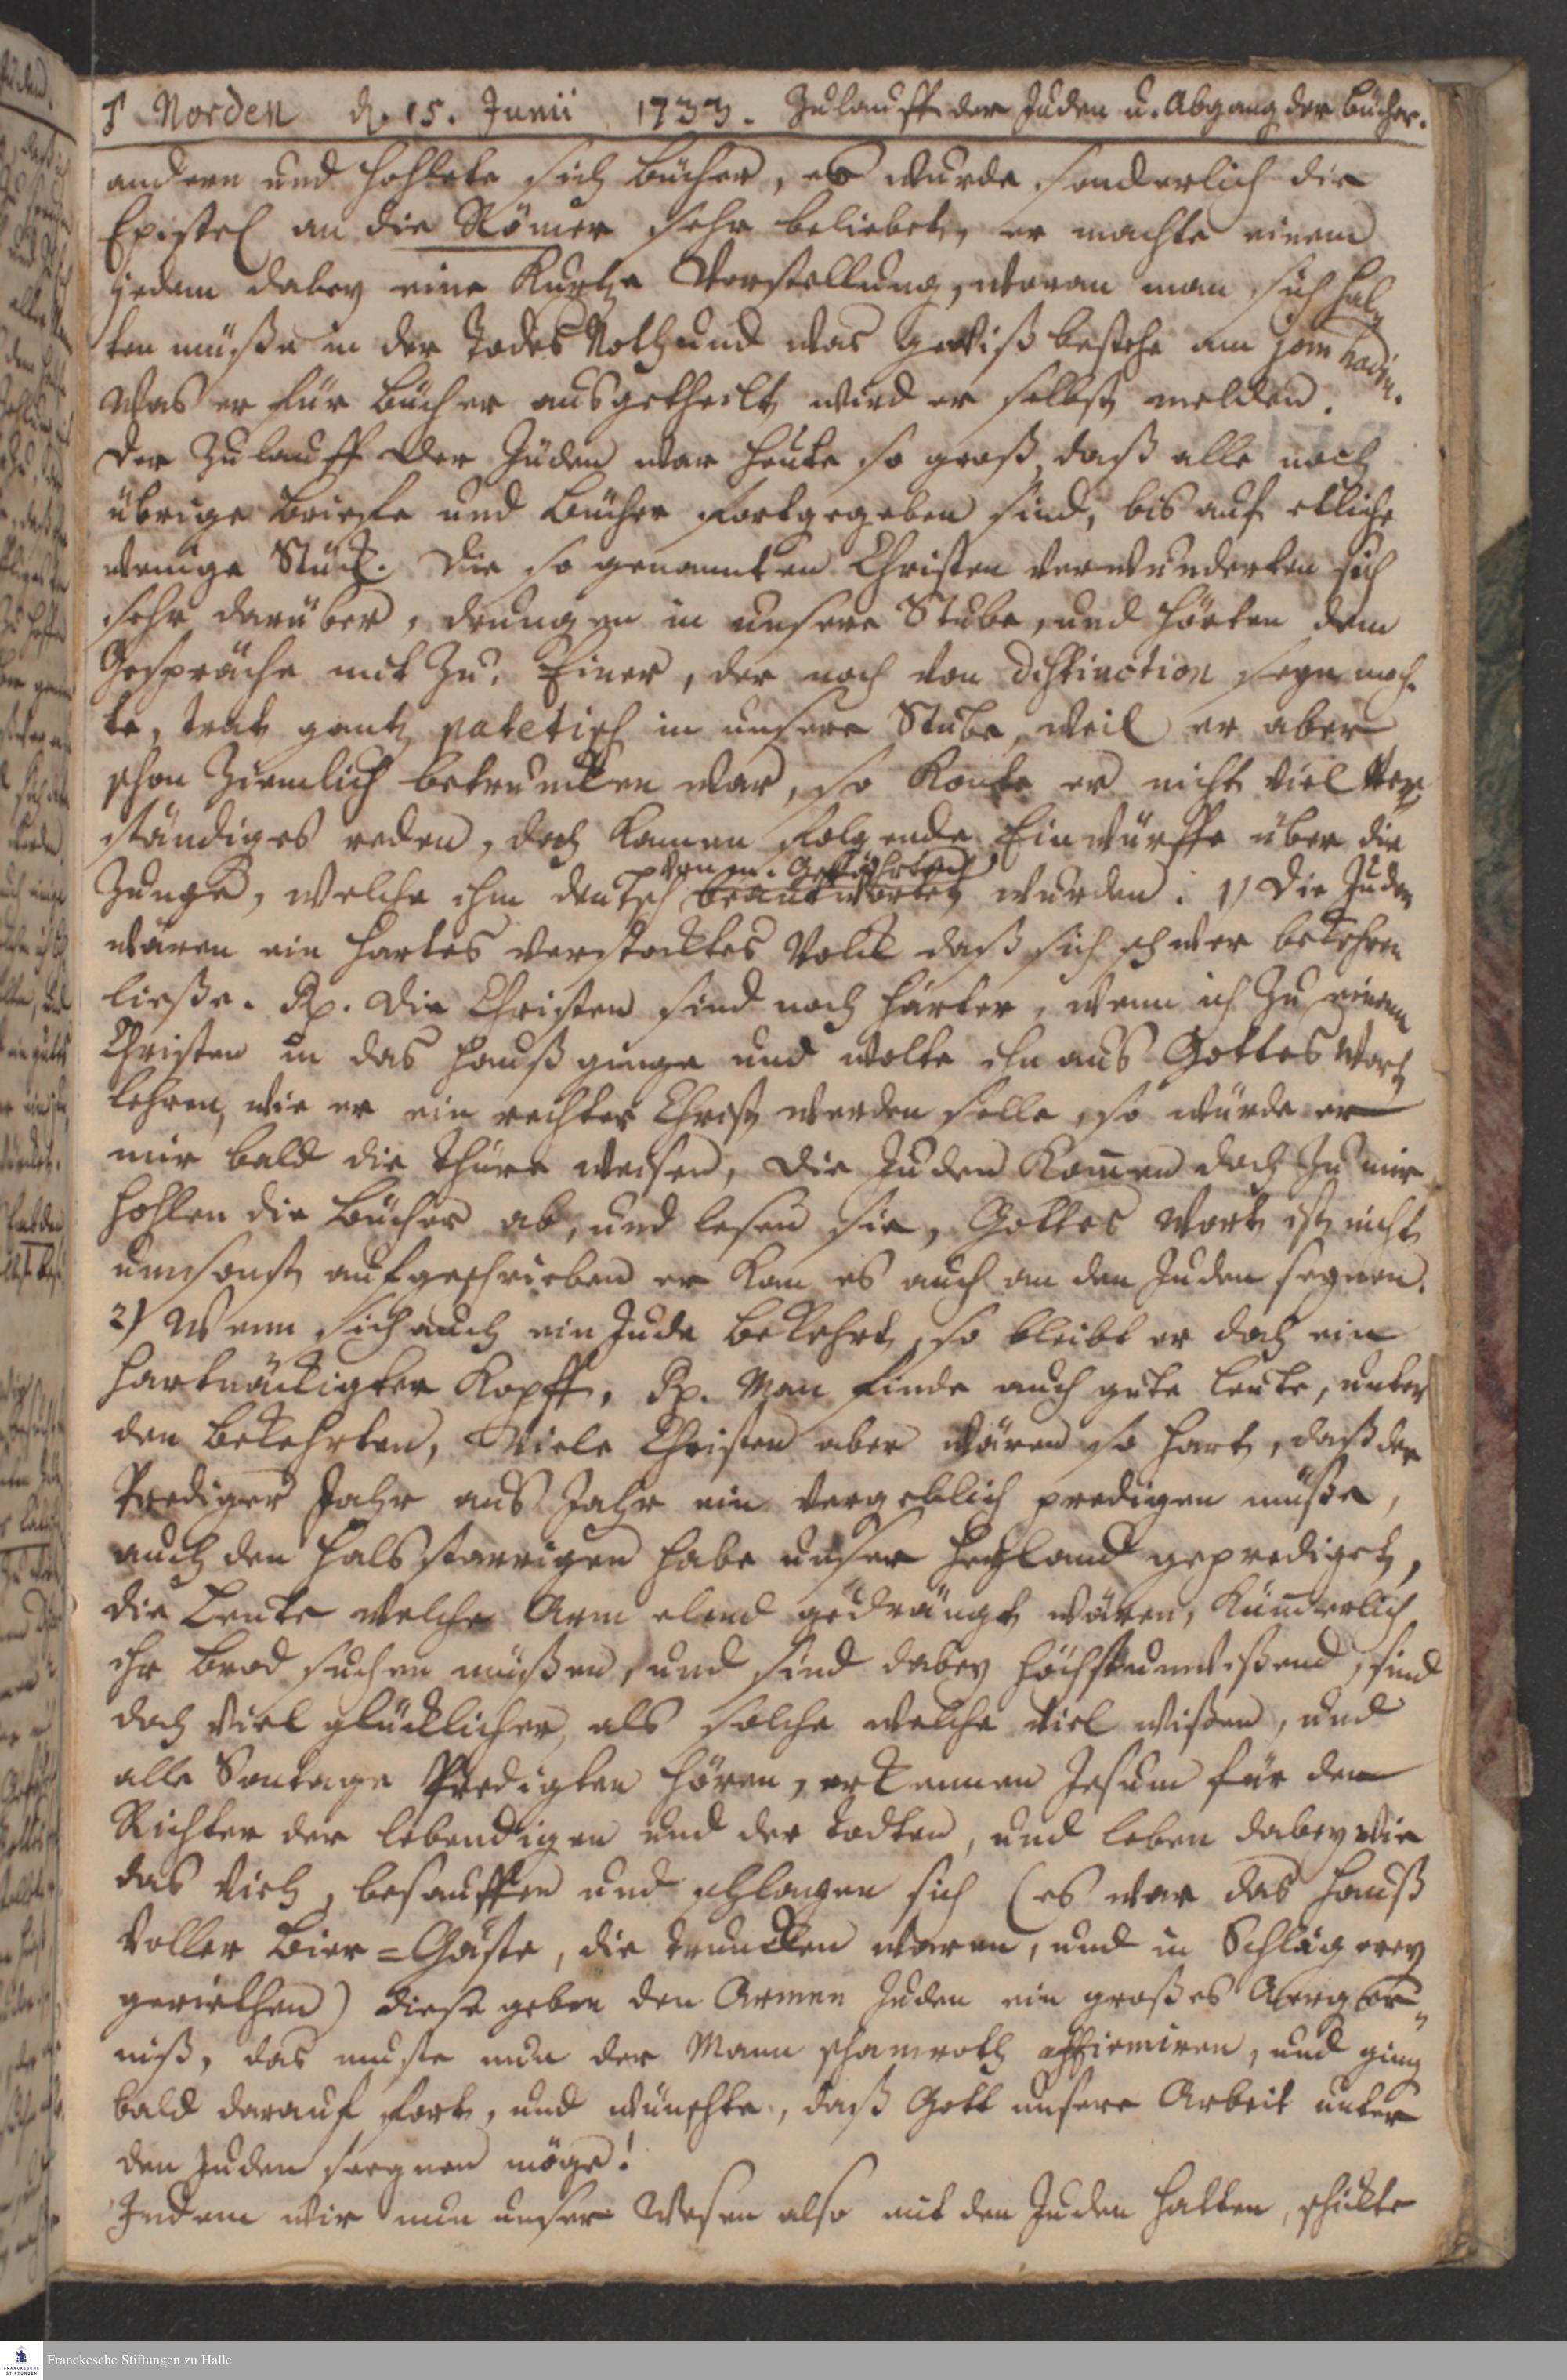 Norden d. 15. Junii 1733. Zulauff der Juden u. Abgang der Bücher.
andern und hohlete sich Bücher, es wurde sonderlich die
Epistel an die Römer sehr beliebet, er machte einem
jedem dabey eine Kurtze Vorstellung, woran man sich hal-
ten müße in der Todes Noth und was gewiß bestehe am jom hadin.
Was er für Bücher ausgetheilt, wird er selbst melden.
Der Zulauff der Juden war heute so groß, daß alle noch
übrige Brieffe und Bücher fortgegeben sind, bis auf etliche
wenige Stück. Die so genannten Christen verwunderten sich
sehr darüber, drungen in unsere Stube, und hörten dem
Gespräche mit zu. Einer, der noch von distinction seyn moch-
te, trat gantz patetisch in unsere Stube, weil er aber
schon ziemlich betruncken war, so Konte er nicht viel Ver-
ständiges reden, doch kamen folgende Einwürffe über die
von m. Gefährten
Zunge, welche ihm deutsch beantwortet wurden. 1) Die Juden
wären ein hartes verstocktes Volck daß sich schwer bekehren
ließe. Rp. Die Christen sind noch härter, wenn ich zu einem
Christen in das Hauß ginge und wolte ihn aus Gottes Wort
lehren, wie er ein rechter Christ werden solle, so würde er
mir bald die Thüre weisen, die Juden Komen doch zu mir
hohlen die Bücher ab, und lesen sie, Gottes Wort ist nicht
umsonst aufgeschrieben er Kan es auch an den Juden segnen.
2) Wenn sich auch ein Jude bekehrt, so bleibt er doch ein
hartnäckigter Kopff. Rp. Man finde auch gute Leute, unter
den Bekehrten, Viele Christen aber wären so hart, daß der
Prediger Jahr aus Jahr ein vergeblich predigen müße,
auch den halsstarrigen habe unser Heyland geprediget,
die Leute welche Arm elend gedrängt wären, Kümerlich
ihr Brod suchen müßen, und sind dabey höchstunwißend, sind
doch viel glücklicher, als solche welche viel wißen, und
alle Sontage Predigten hören, erkennen Jesum für den
Richter der lebendigen und der Todten, und leben dabey wie
das Vieh, besauffen und schlagen sich (es war das Hauß
voller Bier=Gäste, die truncken waren, und in Schlägerey
geriethen) diese geben den Armen Juden ein großes Aerger-
niß, das muste nun der Mann schamroth affirmiren, und ging
bald darauf fort, und wünschte, daß Gott unsere Arbeit unter
den Juden seegnen möge!
Indem wir nun unser Wesen also mit den Juden hatten, schickte
Franckesche Stiftungen zu Halle